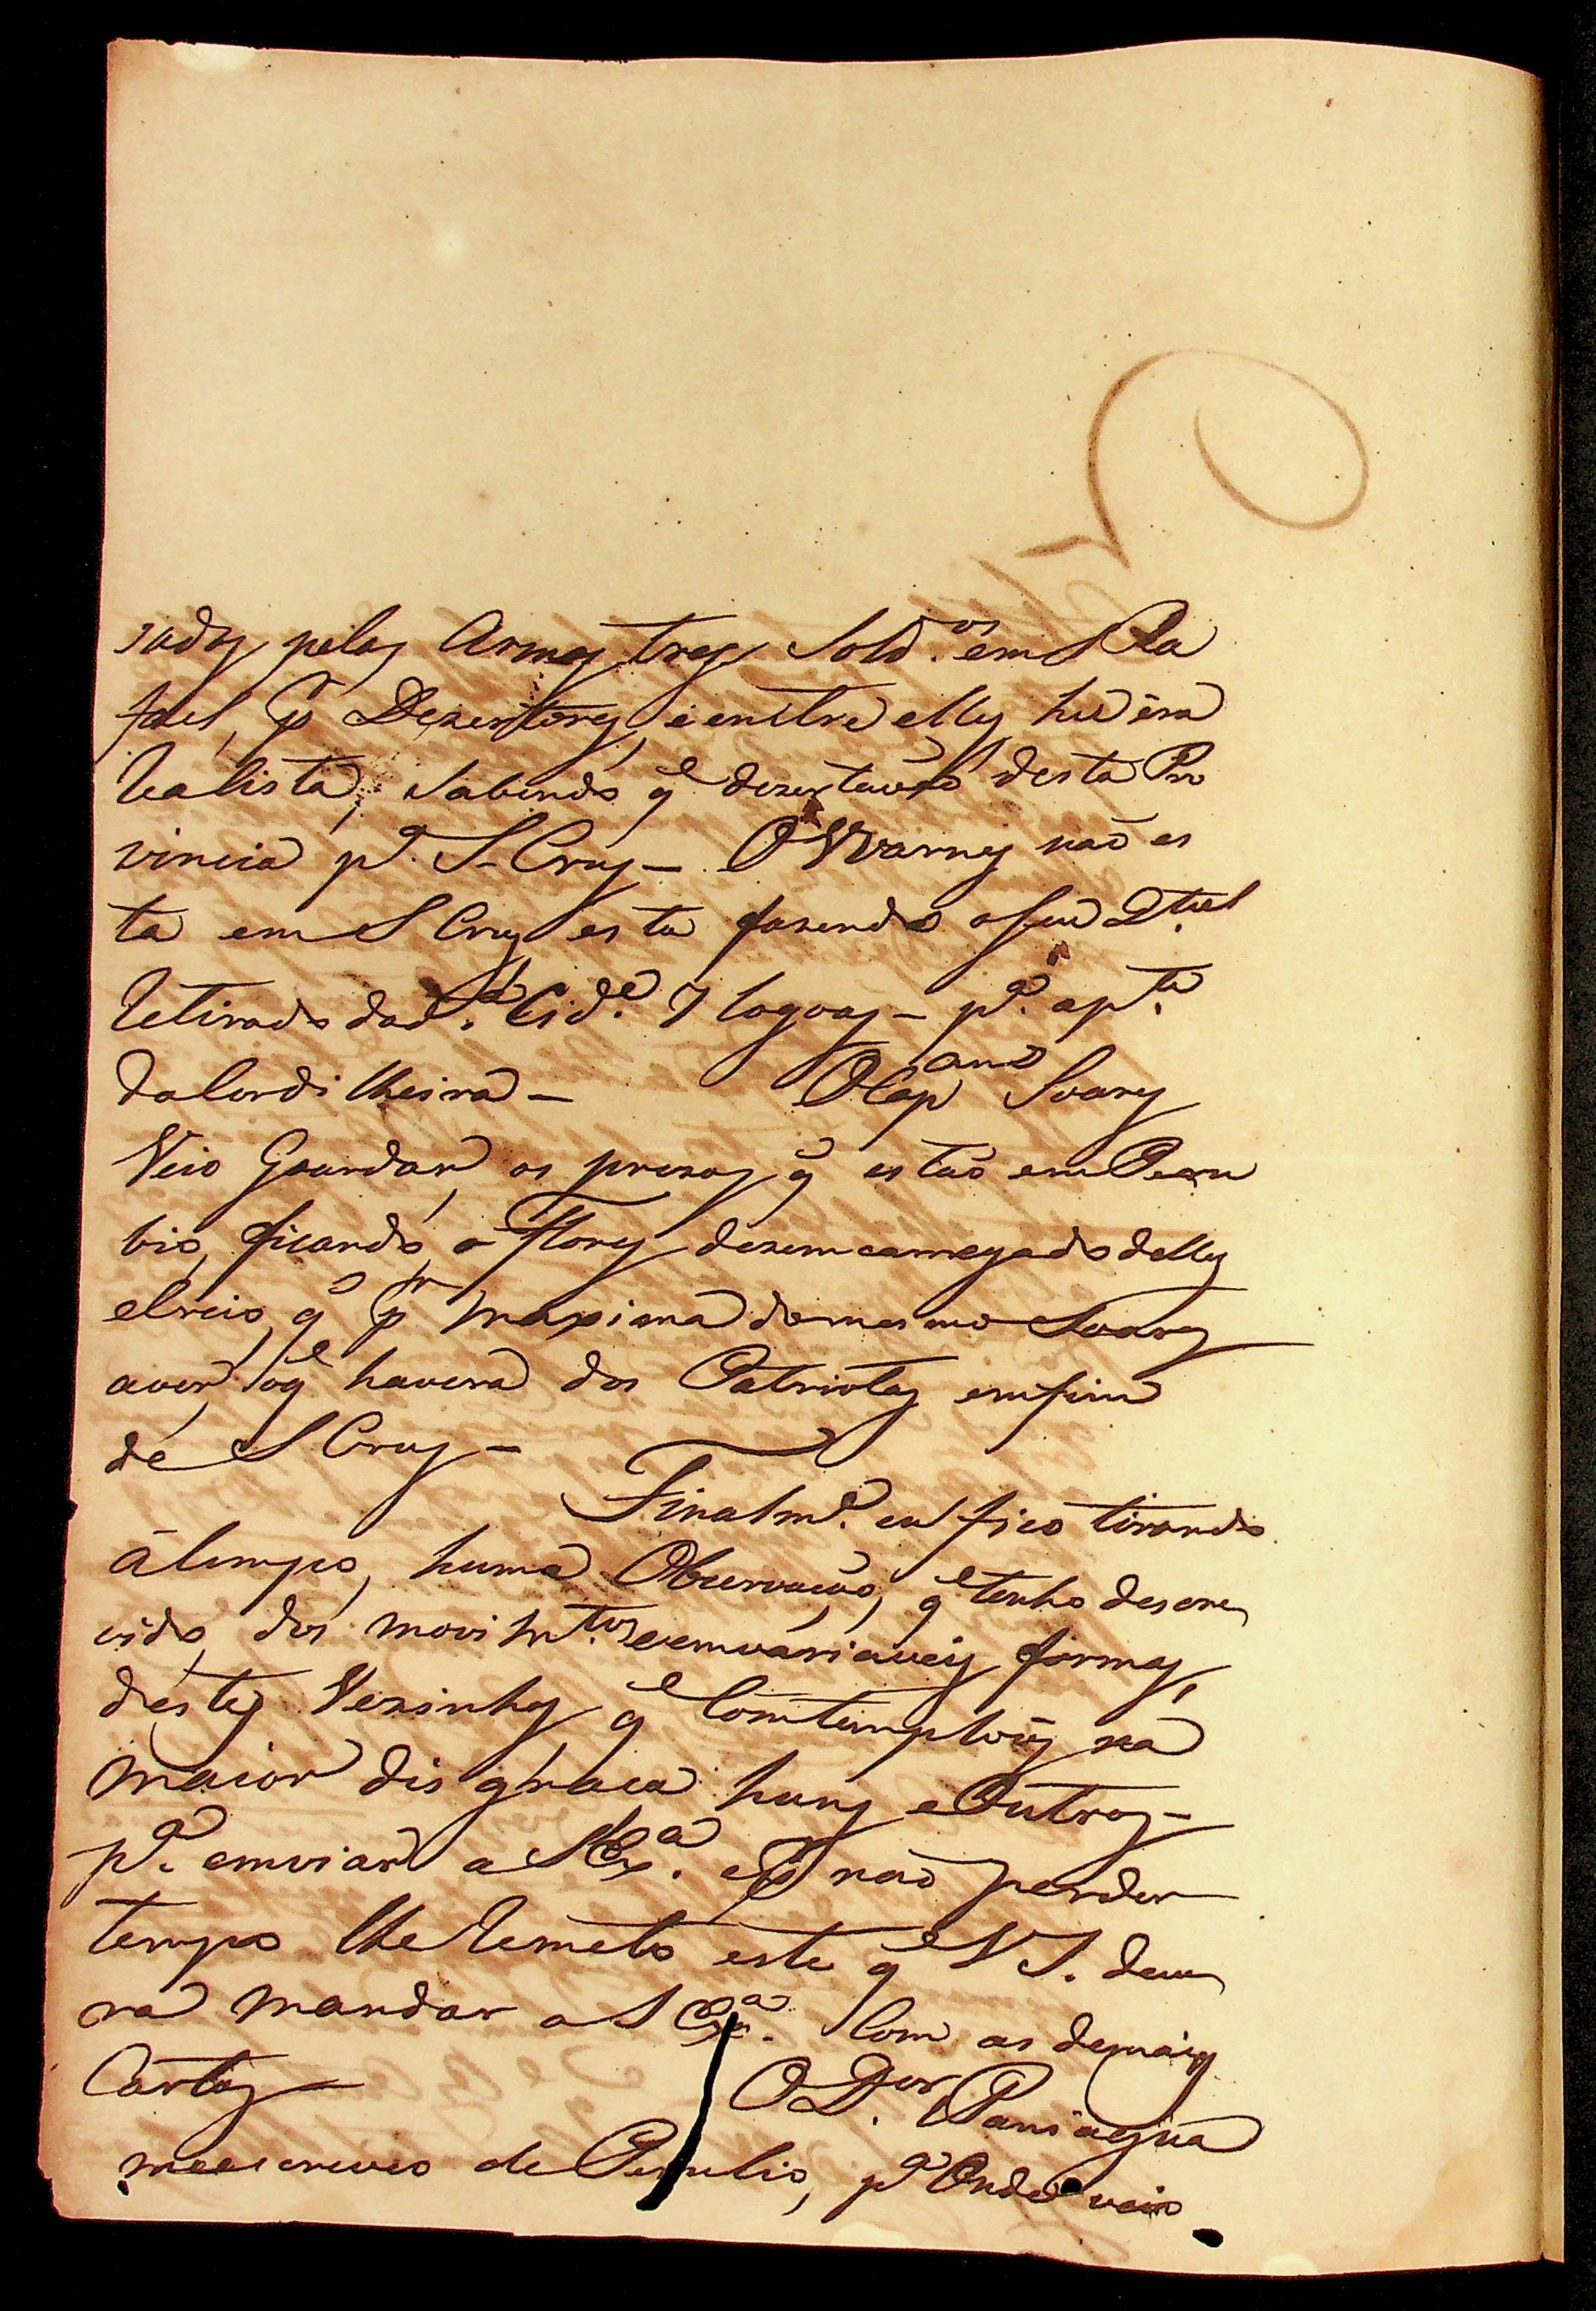 sados pelas Armas tres Sold.os em S Ra
fael, pr Dezertores, e entre elles hũ éra
Realista, sabendo q̃ dezertavaõ desta Pro
vincia pa. S. Cruz — O Warnes naõ es
ta em S Cruz esta fazendo o seu Q.tel
Retirado da d.a Cid.e 7 legoas — pa. a p.te
da Cordilheira — O Cap.am Soares
Veio Guardar os prezos q̃ estaõ em Peru
bio, ficando o Flores dezemcarregado delles
e creio q̃ pr maxima do mesmo Soares
a ver o q̃ havera dos Patriotas em fim
de S Cruz —
Finalm.e eu fico tirando
á limpo, huma Observaçaõ, q̃ tenho descre
vido, dos movim.tos e em variaveis formas,
déstes Vezinhos q̃ Comtemplo-os na
maior disgraca huns e Outros —
pa. emviar a S Ex.a e pr naõ perder
tempo lhe Remeto este q̃ V S. deve
ra mandar a S Ex.a Com as demais
Cartas — O D.or Paniagua
me escreveo de Perubio, pa Onde veio